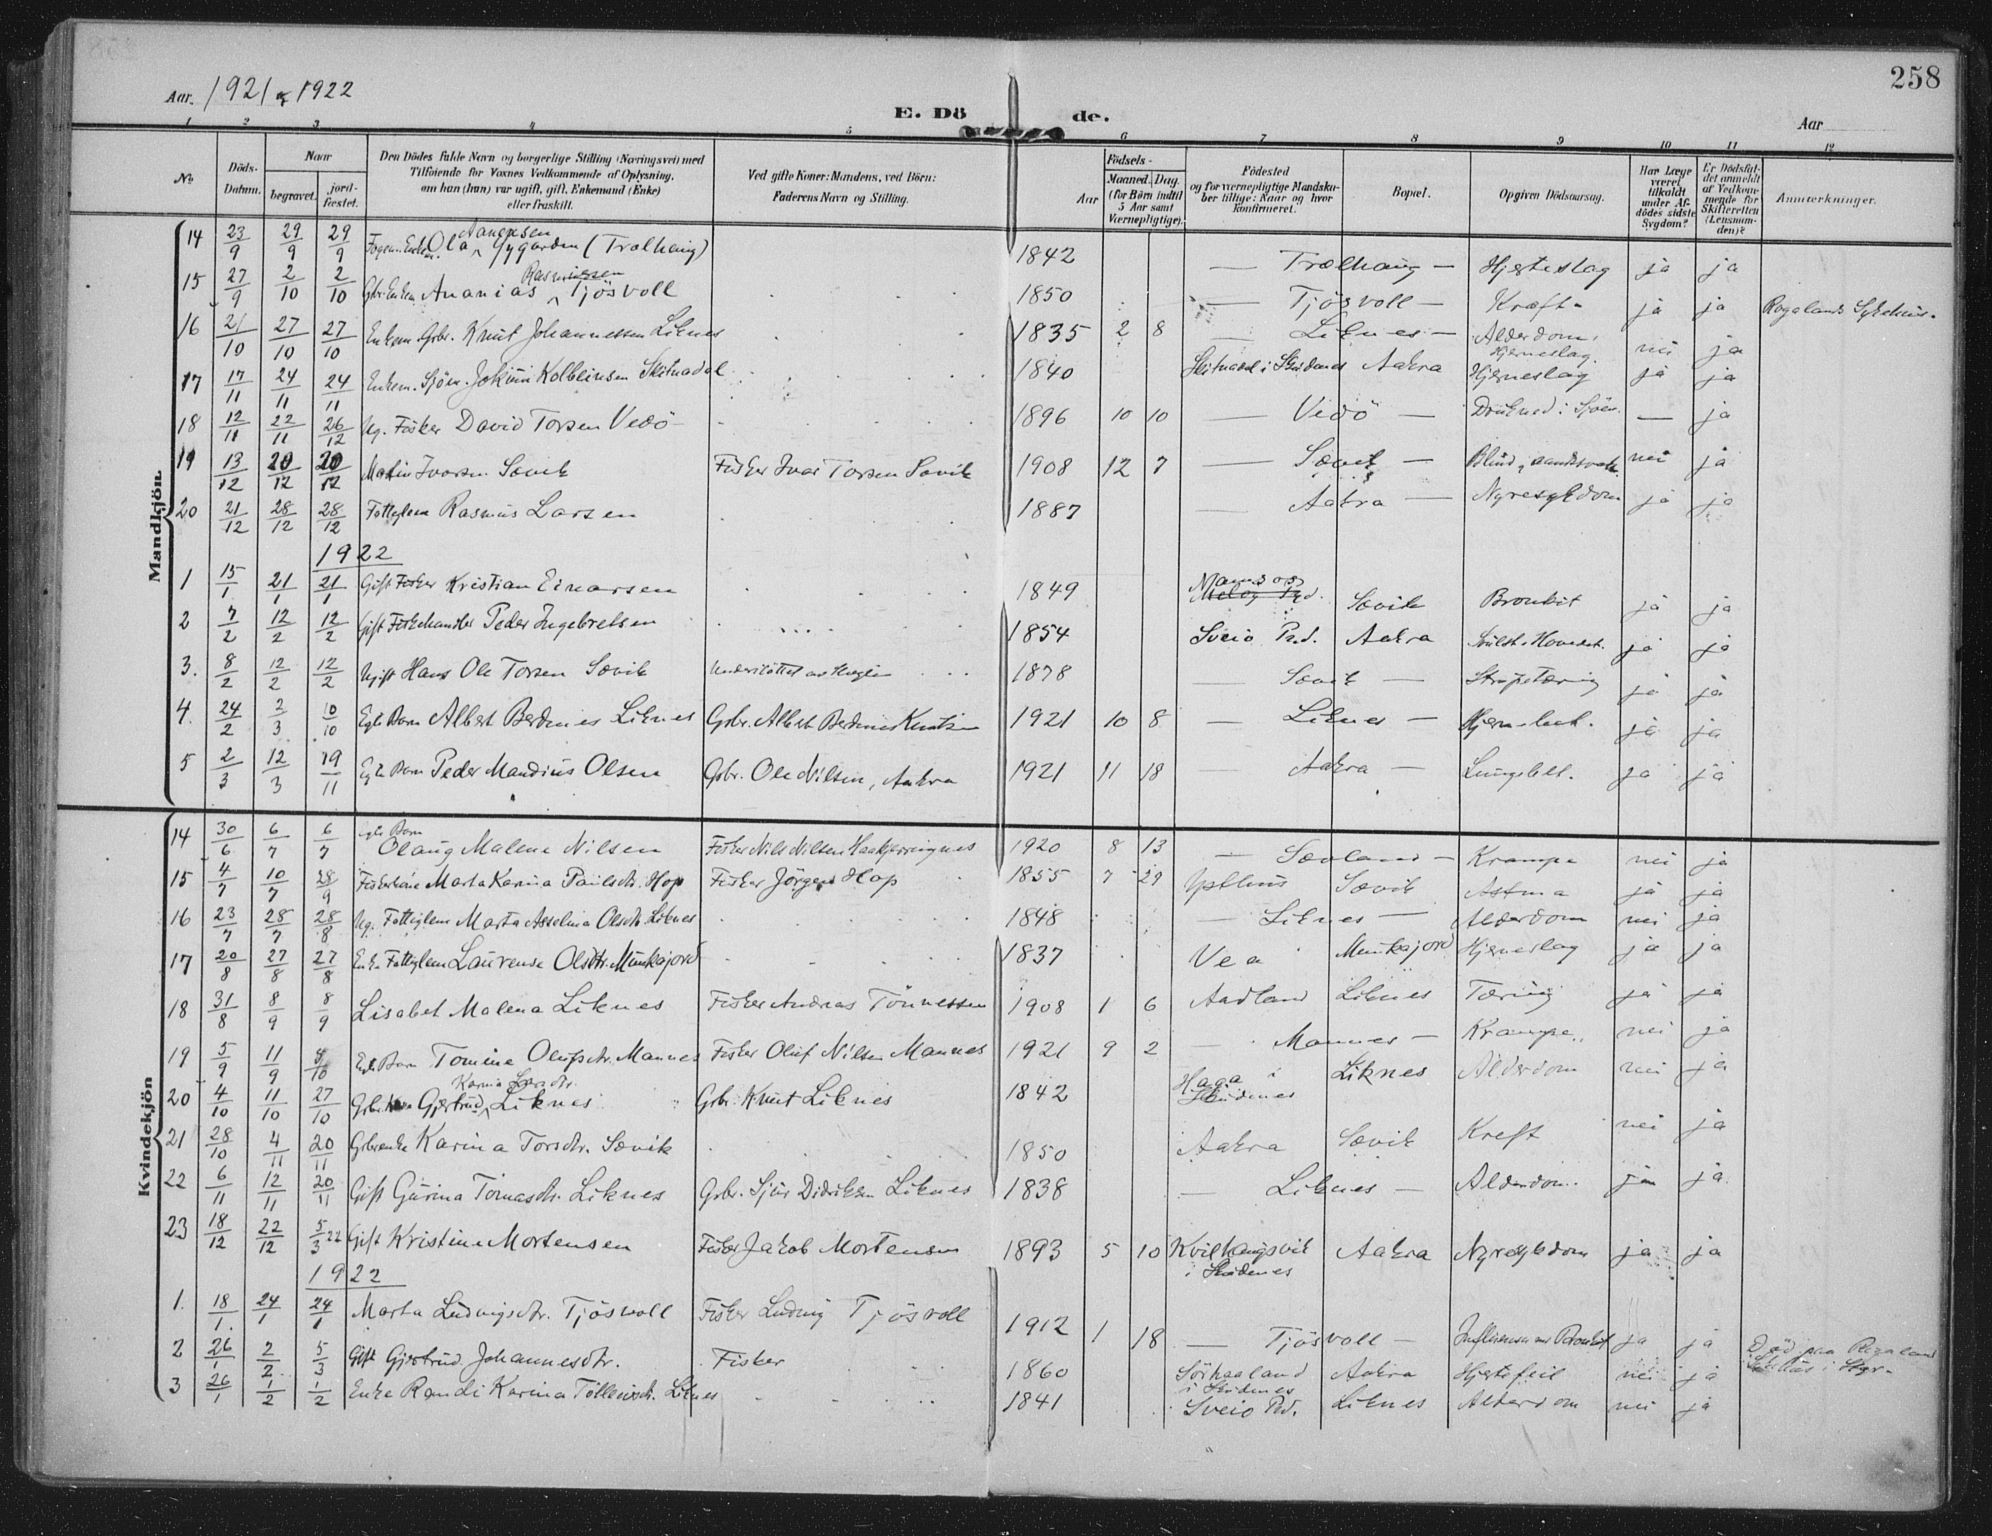 258
Aar. 1921 & 1922
E. Dö de.
Aar
1 2 3 4 5 6 7 8 9 10 11 12
No.
Döds-Datum.
Naar
begravet.
jord-fæstet.
Den Dödes fulde Navn og borgerlige Stilling (Næringsvei) med
Tilföiende for Voxnes Vedkommende af Oplysning,
om han (hun) var ugift, gift, Enkemand (Enke)
eller fraskilt.
Ved gifte Koner: Mandens, ved Börn:
Faderens Navn og Stilling.
Födsels-
Aar
Maaned. Dag.
(for Börn indtil
5 Aar samt
Værnepligtige).
Födested
og for værnepligtige Mandsku-
ber tillige: Naar og hvor
konfirmeret.
Bopæl.
Opgiven Dödsaarsag.
Har Læge
været
tilkaldt
under Af-
dödes sidste
Sygdom?
Er Dödsfal-
det anmeldt
af Vedkom-
mende for
Skifteretten
(Lensman-
den)?
Anmærkninger.
Mandkjön.
14 23/9 29/9 29/9 Ola Aanensen Nygarden (Trælhaug) 1842 — Trælhaug — Hjerteslag ja ja
15 27/9 2/10 2/10 Gbr. Enkem. Ananias Rasmussen Tjösvoll 1850 — Tjösvoll — Kræft ja ja Rogalands Sykehus.
16 21/10 27/10 27/10 Enkem. Gbr. Knut Johannessen Liknes 1835 2 8 — Liknes — Alderdom, Hjerneslag. nei ja
17 17/11 24/11 24/11 Enkem. Sjöm. Jokum Kolbeinsen Skitnadal 1840 Skitnadal i Skudenes Aakra Hjerneslag ja ja
18 12/11 22/11 26/12 Ug. Fisker David Torsen Vedö 1896 10 10 — Vedö — Drukned i Sjöen. — ja
19 13/12 20/12 20/12 Martin Ivarsen Sævik Fisker Ivar Torsen Sævik 1908 12 7 — Sævik — Blind, aandssvak nei ja
20 21/12 28/12 28/12 Fattiglem Rasmus Larsen 1887 Aakra — Nyresykdom ja ja
1922
1 15/1 21/1 21/1 Gift Fisker Kristian Einarsen 1849 Namsos Sævik Bronkit ja ja
2 7/2 12/2 12/2 Gift Fiskehandler Peder Ingebretsen 1854 Sveio Prd. Aakra Svulst i Hovedet. ja ja
3. 8/2 12/2 12/2 Ugift Hans Ole Torsen Sævik Understöttet av 1878 — Sævik — Strupetæring ja ja
4. 24/2 2/3 10/10 Egte Barn Albert Berdines Liknes Gbr. Albert Berdines Knutsen 1921 10 8 — Liknes — ja ja
5 2/3 12/3 19/11 Egte Barn Peder Mandius Olsen Gbr. Ole Nilsen, Aakra 1921 11 18 — Aakra — Lungebet. ja ja
Kvindekjön
14 30/6 6/7 6/7 egte Barn Olaug Malene Nilsen Fisker Nils Nilsen 1920 8 13 — Sævland — Krampe nei ja
15 4/7 10/7 28/9 Fiskerkone Marta Karina Paulsdtr. Hop Fisker Jörgen Hop 1855 7 29 Ypthus Sævik Astma ja ja
16 23/7 28/7 28/8 Ug. Fattiglem Marta Asseline Olsdtr Liknes 1848 — Liknes — Alderdom nei ja
17 20/8 27/8 27/8 Enke Fattiglem Laurense Olsdtr. Munkajord 1837 Vea Munkajord Hjerneslag ja ja
18 31/8 8/9 8/9 Lisabet Malena Liknes Fisker Andreas Tönnessen 1908 1 6 Aadland Liknes Tæring ja ja
19 5/9 11/9 9/10 Egte Barn Tomine Olufsdtr. Mannes Fisker Oluf Nilsen Mannes 1921 9 2 — Mannes — Krampe nei ja
20 4/10 11/10 27/10 Gbr. Kone Gjertrud Karina Larsdtr. Liknes Gbr. Knut Liknes 1842 Haga i Skudenes Liknes Alderdom nei ja
21 28/10 4/11 20/11 Gbr.enke Karina Torsdtr. Sævik 1850 Aakra Sævik Kreft nei ja
22 6/11 12/11 20/11 Gift Gurina Tomasdtr. Liknes Gbr. Sjur Didriksen Liknes 1838 — Liknes — Alderdom. ja ja.
23 18/12 22/12 5/3 22 Gift Kristine Mortensen Fisker Jakob Mortensen 1893 5 10 Kvilhaugsvik i Skudenes Aakra Nyresykdom ja ja
1922
1. 18/1. 24/1 24/1 Marta Ludvigsdtr. Tjösvoll Fisker Ludvig Tjösvoll 1912 1 18 — Tjösvoll — Influensa m. Bronkit ja ja Död paa Rogaland
2 26/1 2/2 5/3 Gift Gjertrud Johannesdtr. Fisker 1860 Sörhaaland i Skudenes Aakra Hjertefeil nei ja
3 26/1 1/2 1/2 Enke Randi Karina Tollevsdtr. Liknes 1841 Sveio Prd. Liknes Alderdom nei ja